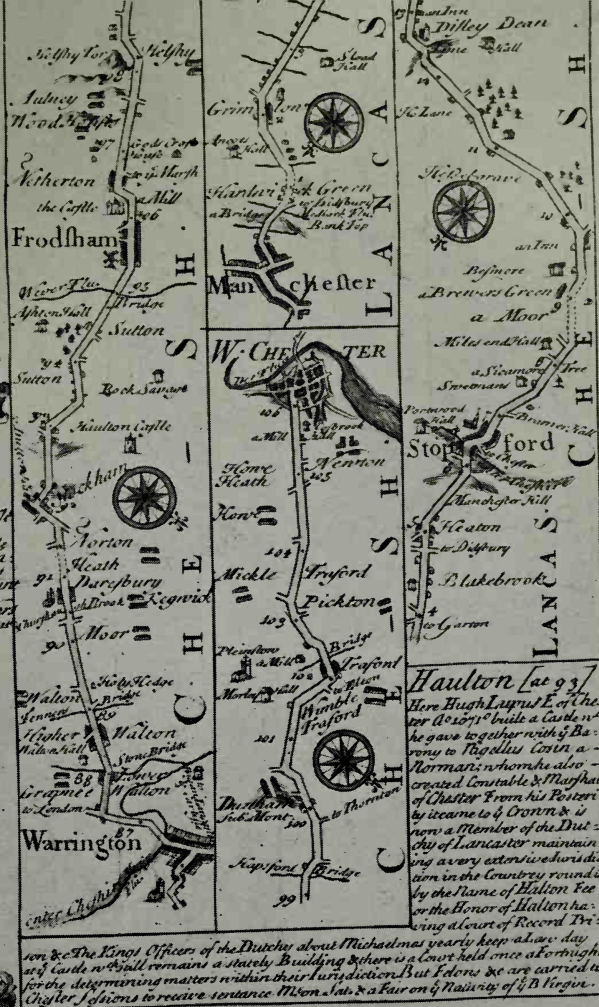 Helsby Tor
Helsby
98
Wood
97
to ye Marsh
Netherton
a Mill
the Castle
96
Frodsham
Wever Flu
95
Bridge
Ashton Hall
Sutton
94
Sutton
Rock Savage
93
Haulton Castle
Norton
Heath
92
Daresbury
Kegwick
Moor
90
Holy Hedge
Walton
Bridge
89
Higher
Walton
Walton Hall
Stone Bridge
88
Lower
Walton
to London
87
Warrington
enter Cheshire
CHESH
Stoad
Hall
Grim Low
Ancots
Hall
Hardwick Green
to Didsbury
a Bridge
Bank Top
Manchester
LANCAS
W. CHESTER
106
a Mill
Newton
105
Howe
Heath
Howe
104
Mickle Traford
Pickton
103
Bridge
Pleinstow
a Mill
Traford
102
to Elton
Morley Hall
Wimble
Traford
101
Dunham
Sub. Mont.
to Thornton
100
Hapsford Bridge
99
CHESH
13
an Inn
Disley Dean
Lane Hall
12
He Lane
11
10
an Inn
Besmore
a Brewers Green
a Moor
9
Miles end Hall
8
a Sicamore Tree
Swetmans
Portwood
Hall
Stopford
Manchester Hill
Heaton
to Didsbury
Blakebrook
4
to Garton
CHESH
LANCAS
Haulton [at 93]
Here Hugh Lupus E. of Ches
ter Ao. 1071 built a Castle wch
he gave together with ye Ba-
rony to Nigellus Cosin a
Norman; whom he also
created Constable & Marshal
of Chester From his Posteri
ty it came to ye Crown & is
now a Member of the Dut-
chy of Lancaster maintain
ing a very extensive Jurisdic
tion in the Countrey round it
by the Name of Halton Fee
or the Honor of Halton ha-
ving a Court of Record Pri-
son &c The Kings Officers of the Dutchy about Michaelmas yearly keep a Law day
at ye Castle wch still remains a stately Building & there is a Court held once a Fortnight
for the determining matters within their Jurisdiction But Felons &c are carried to
Chester Sessions to receive sentance M. on Sat. & a Fair on ye Nativity of ye B Virgin.